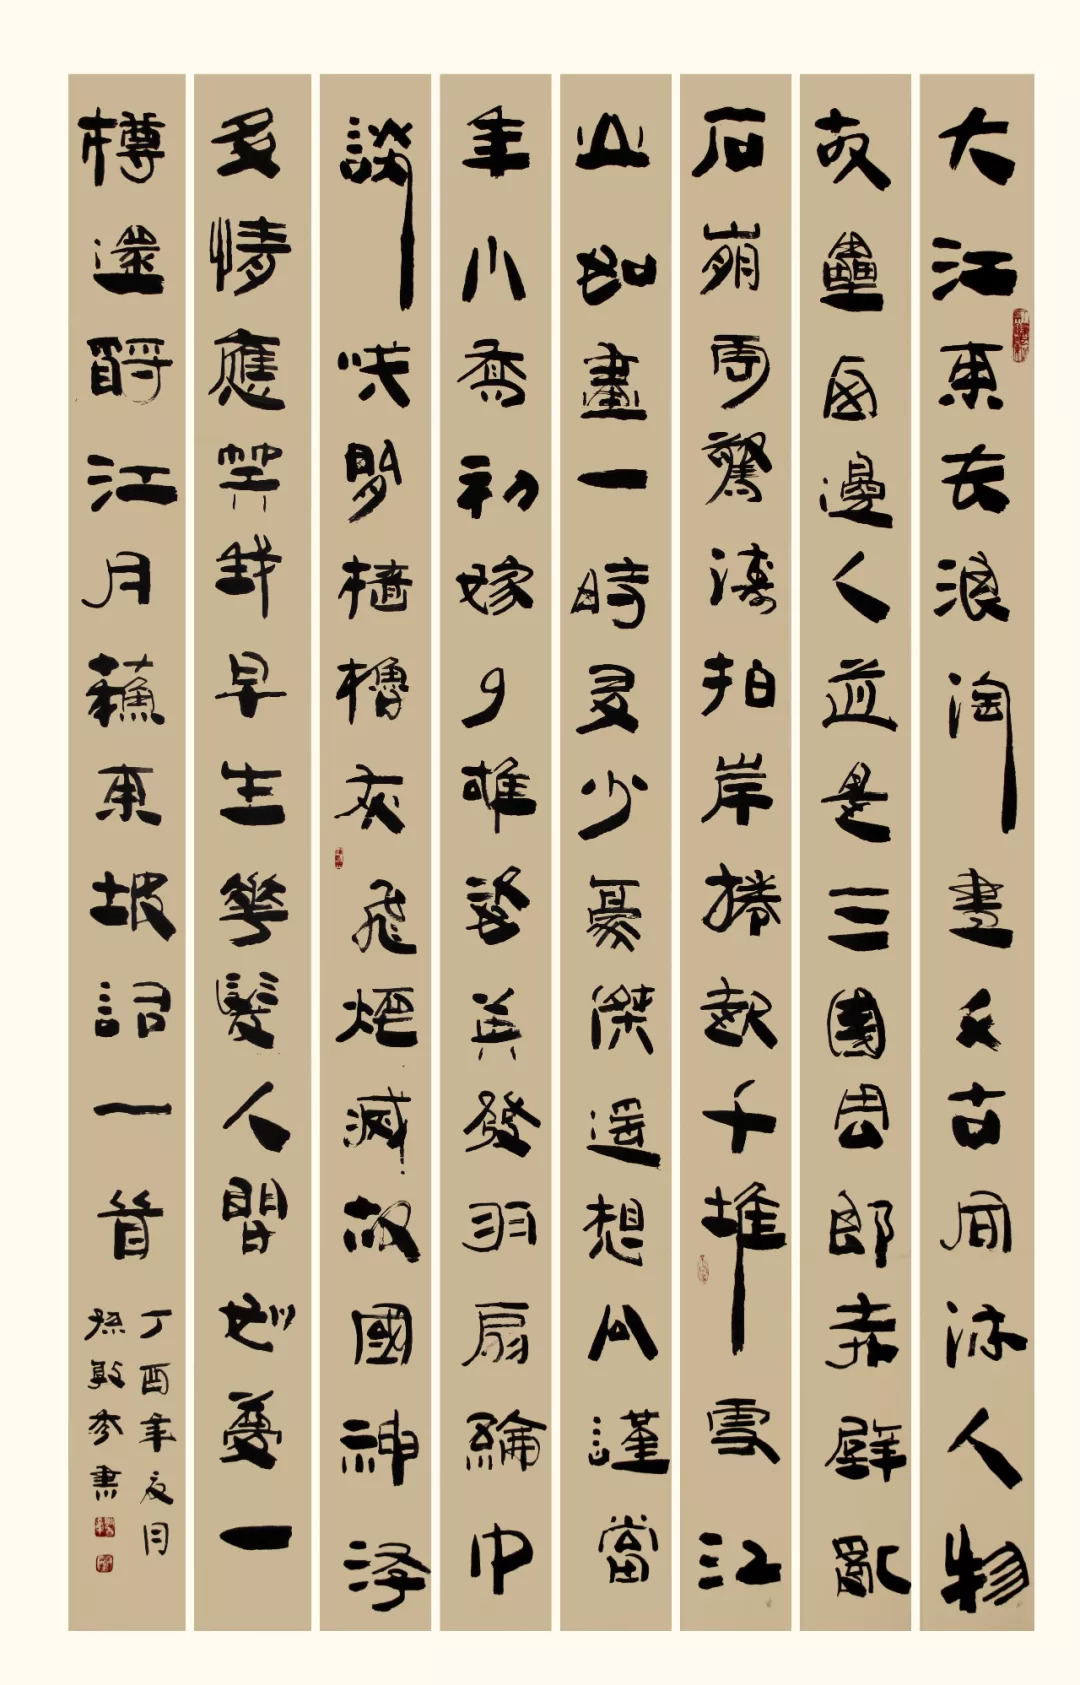 大江東去浪淘盡千古風流人物
故壘西邊人道是三國周郎赤壁亂
石崩雲驚濤拍岸捲起千堆雪江
山如畫一時多少豪傑遥想公謹當
年小喬初嫁了雄姿英發羽扇綸巾
談笑間檣櫓灰飛煙滅故國神游
多情應笑我早生華髮人間如夢一
樽還酹江月蘇東坡詞一首
丁酉年夏月
孫敦秀書